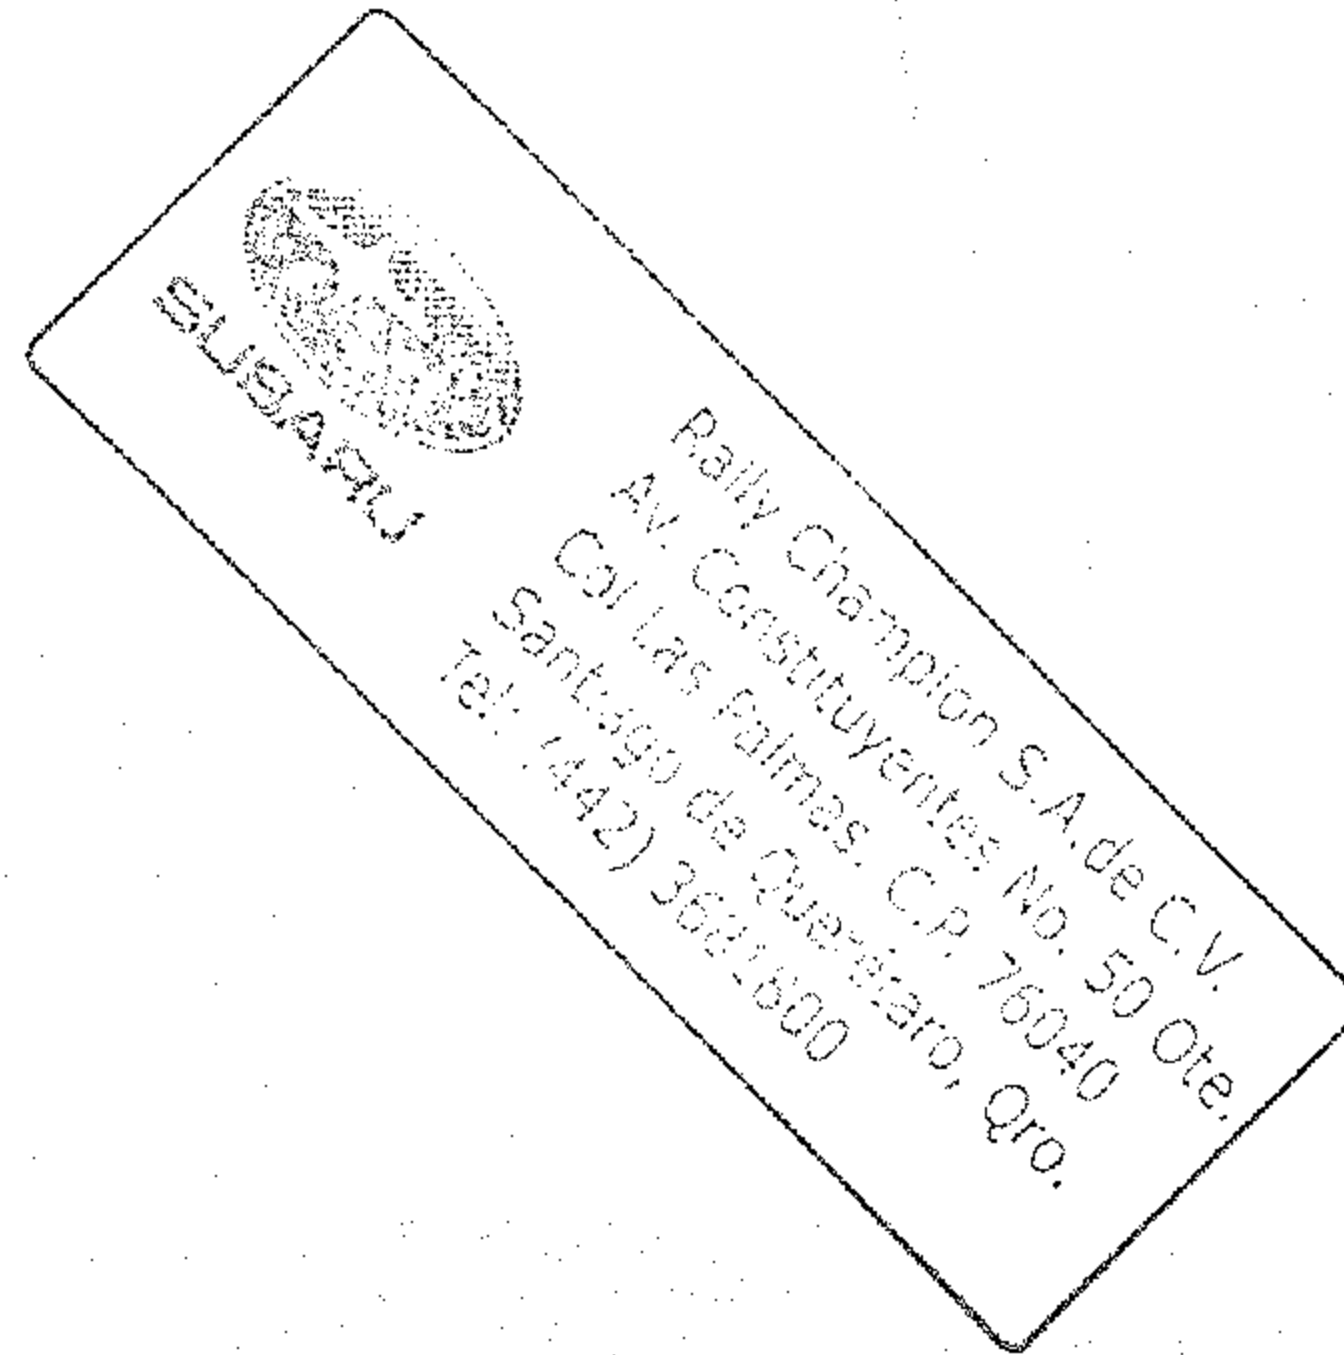 SUBARU
Rally Champion S.A. de C.V.
Av. Constituyentes No. 50 Ote.
Col Las Palmas. C.P. 76040
Santiago de Querétaro, Qro.
Tel: (442)